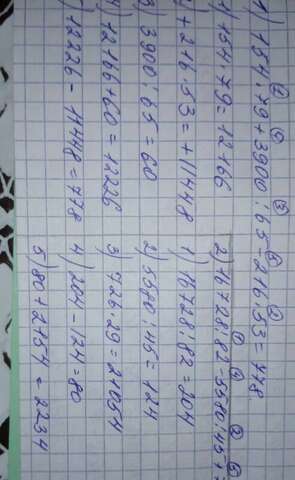 1) 154·79+3900:65-216·53=778
1) 154·79=12166 2) 16728:82-5580:45+7
+216·53=+11448 1) 16728:82=204
3) 3900:65=60 2) 5580:45=124
4) 12166+60=12226 3) 726·29=21054
) 12226-11448=778 4) 204-124=80
5) 80+2154=2234